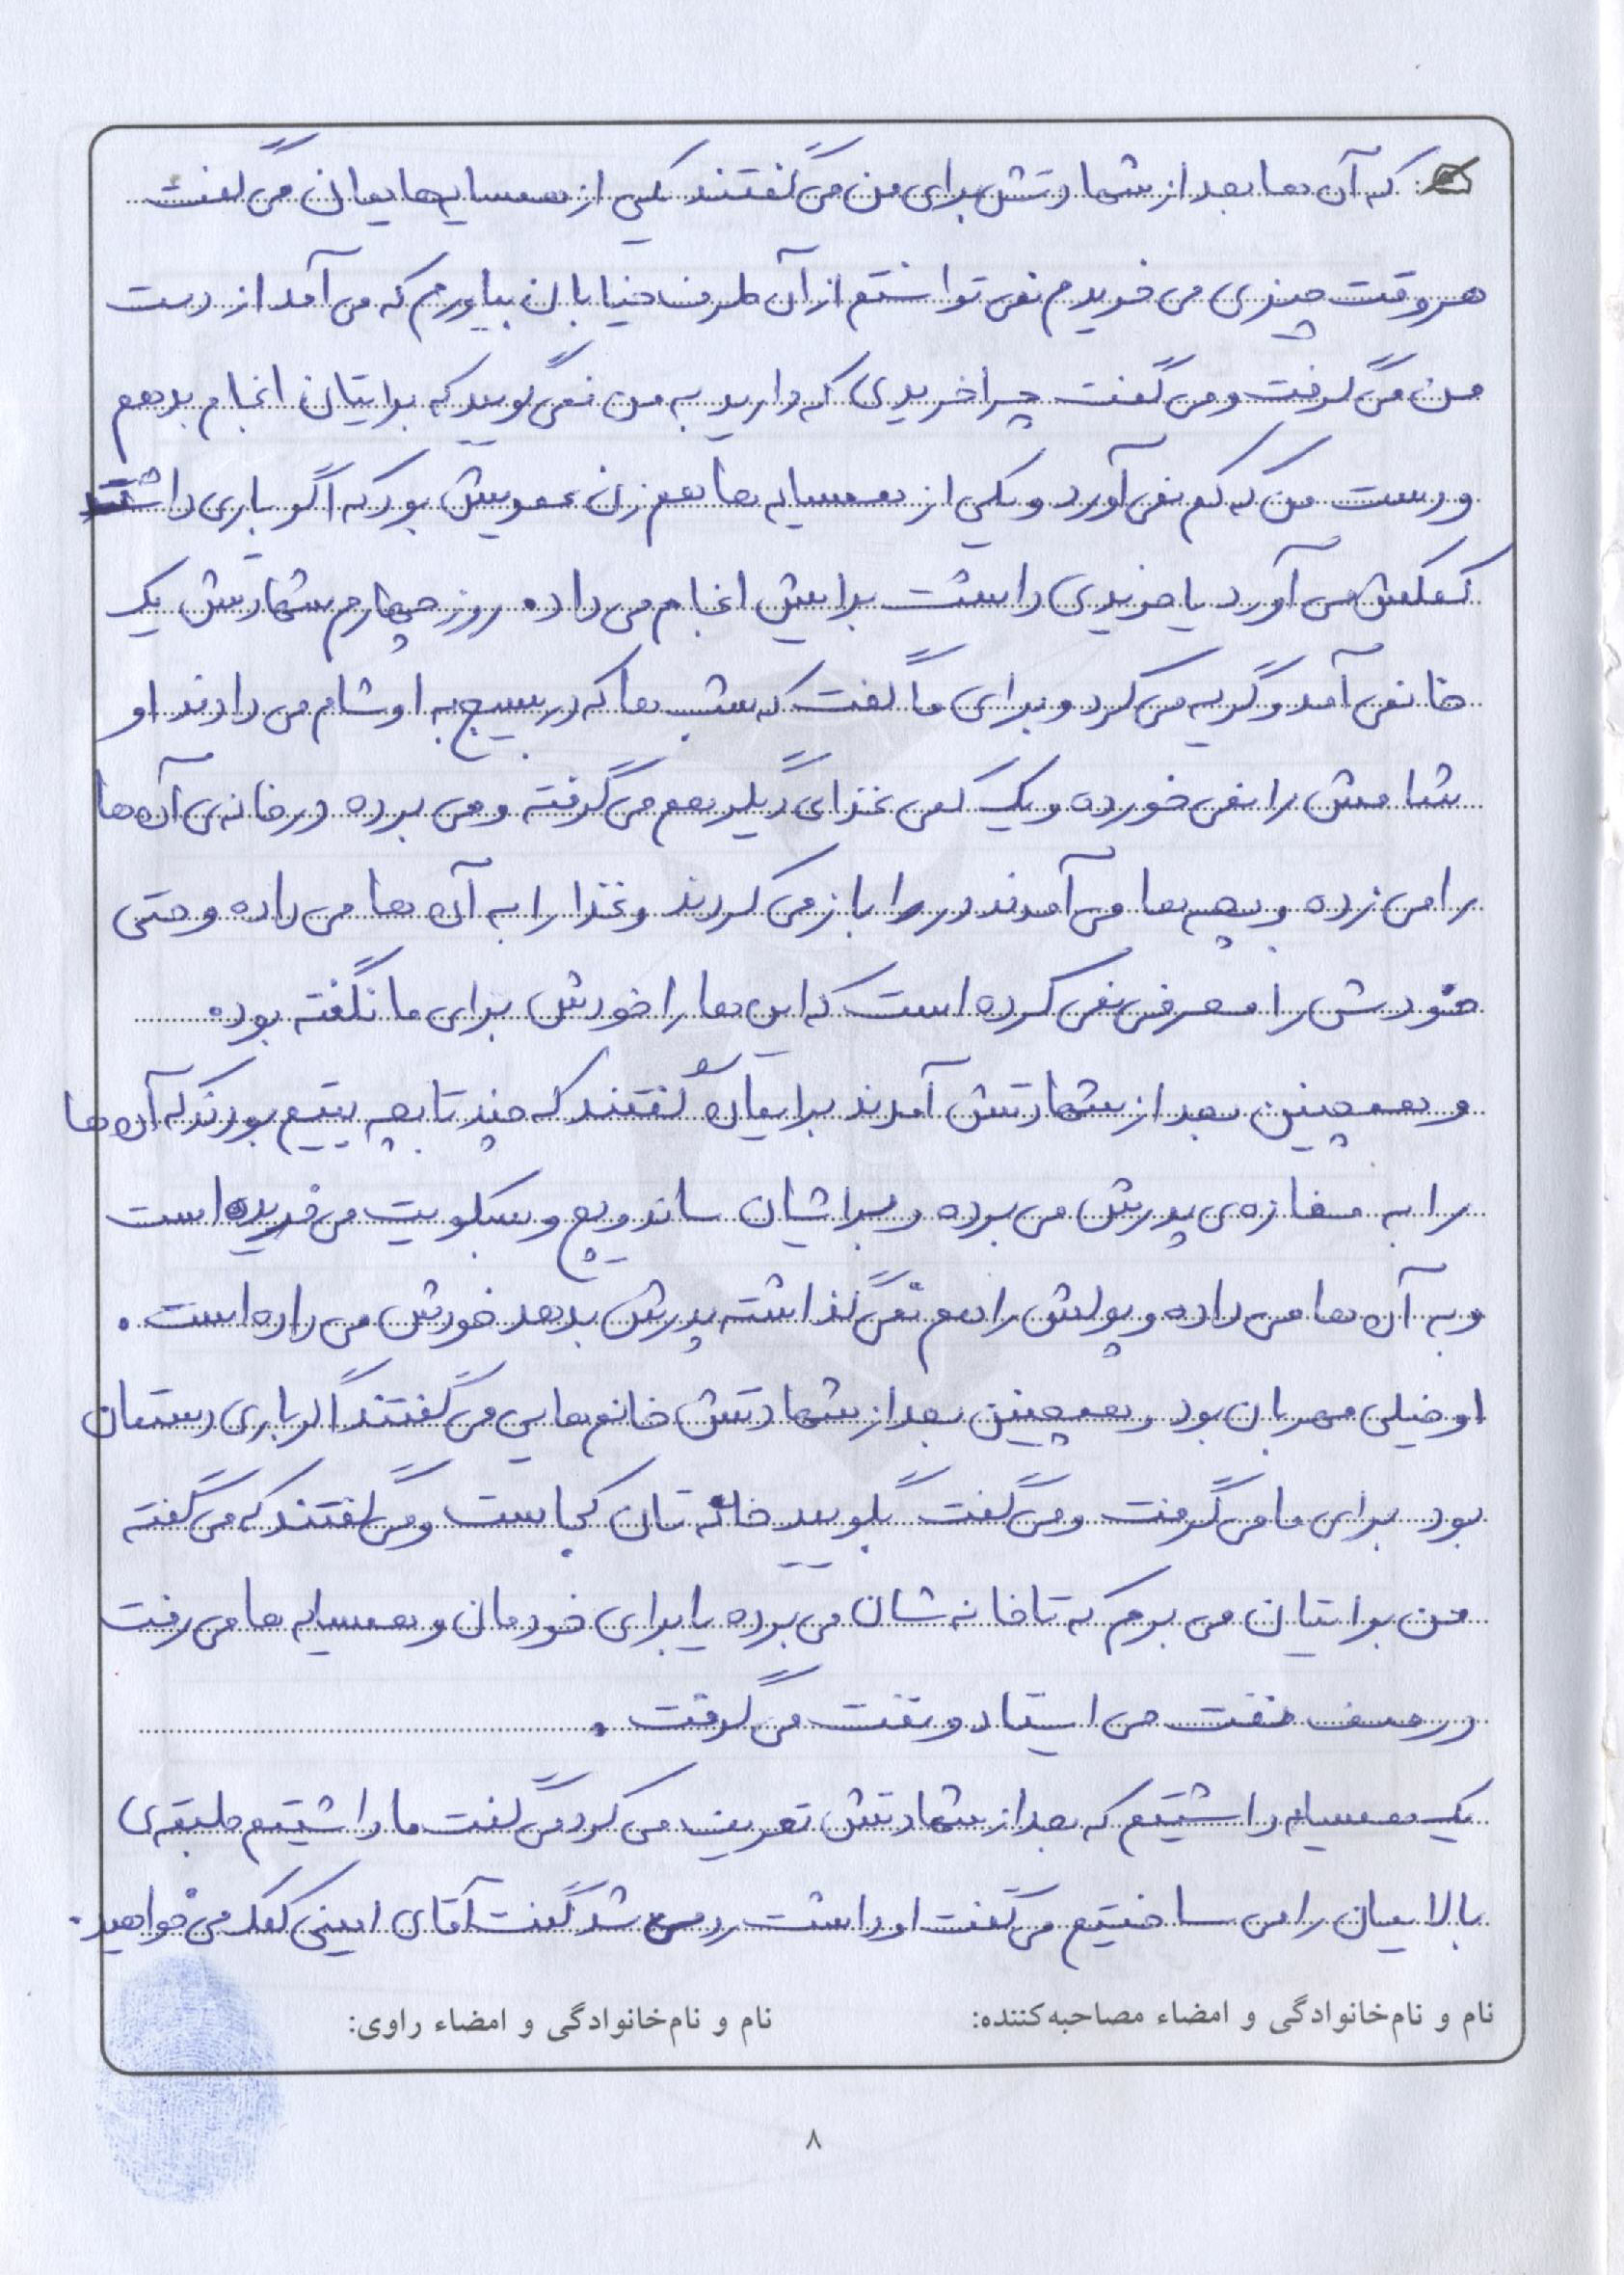 که آن ها بعد از شهادتش برای من می گفتند یکی از همسایه هایمان می گفت
هر وقت چیزی می خریدم نمی توانستم از آن طرف خیابان بیاورم که می آمد از دست
من می گرفت و می گفت چرا خریدی که دارید به من نمی گویید که برایتان انجام بدهم
و دست من که کم نمی آورد و یکی از همسایه ها هم زن عمویش بود که اگر باری داشت
کمکش می آورد یا خریدی داشت برایش انجام می داده. روز چهارم شهادتش یک
خانمی آمد و گریه می کرد و برای ما گفت که شب ها که در بسیج به او شام می دادند او
شامش را نمی خورده و یک کمی غذای دیگر هم می گرفته و می برده در خانه ی آن ها
را می زده و بچه ها می آمدند در را باز می کردند و غذا را به آن ها می داده و حتی
خودش را معرفی نمی کرده است که این ها را خودش برای ما نگفته بود.
و همچنین بعد از شهادتش آمدند برایمان گفتند که چند تا بچه یتیم بودند که آن ها
را به مغازه ی پدرش می برده و برایشان ساندویچ و بیسکویت می خریده است
و به آن ها می داده و پولش را هم نمی گذاشته پدرش بدهد خودش می داده است.
او خیلی مهربان بود و همچنین بعد از شهادتش خانم هایی می گفتند اگر باری دستمان
بود برای ما می گرفت و می گفت بگویید خانه تان کجاست و می گفتند که می گفته
من برایتان می برم که تا خانه شان می برده یا برای خودمان و همسایه ها می رفت
در صف نفت می ایستاد و نفت می گرفت.
یک همسایه داشتیم که بعد از شهادتش تعریف می کرد می گفت ما داشتیم طبقه ی
بالایمان را می ساختیم می گفت او داشت رد می شد گفت آقای امینی کمک می خواهید.
نام و نام‌خانوادگی و امضاء مصاحبه‌کننده:
نام و نام‌خانوادگی و امضاء راوی:
۸